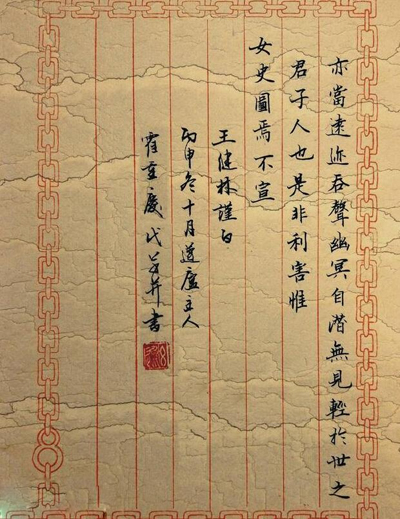 亦當遠迩吞聲幽冥自潛無見輕於世之
君子人也是非利害惟
女史圖焉不宣
王健林謹白
丙申冬十月道廬主人
霍重慶代筆并書